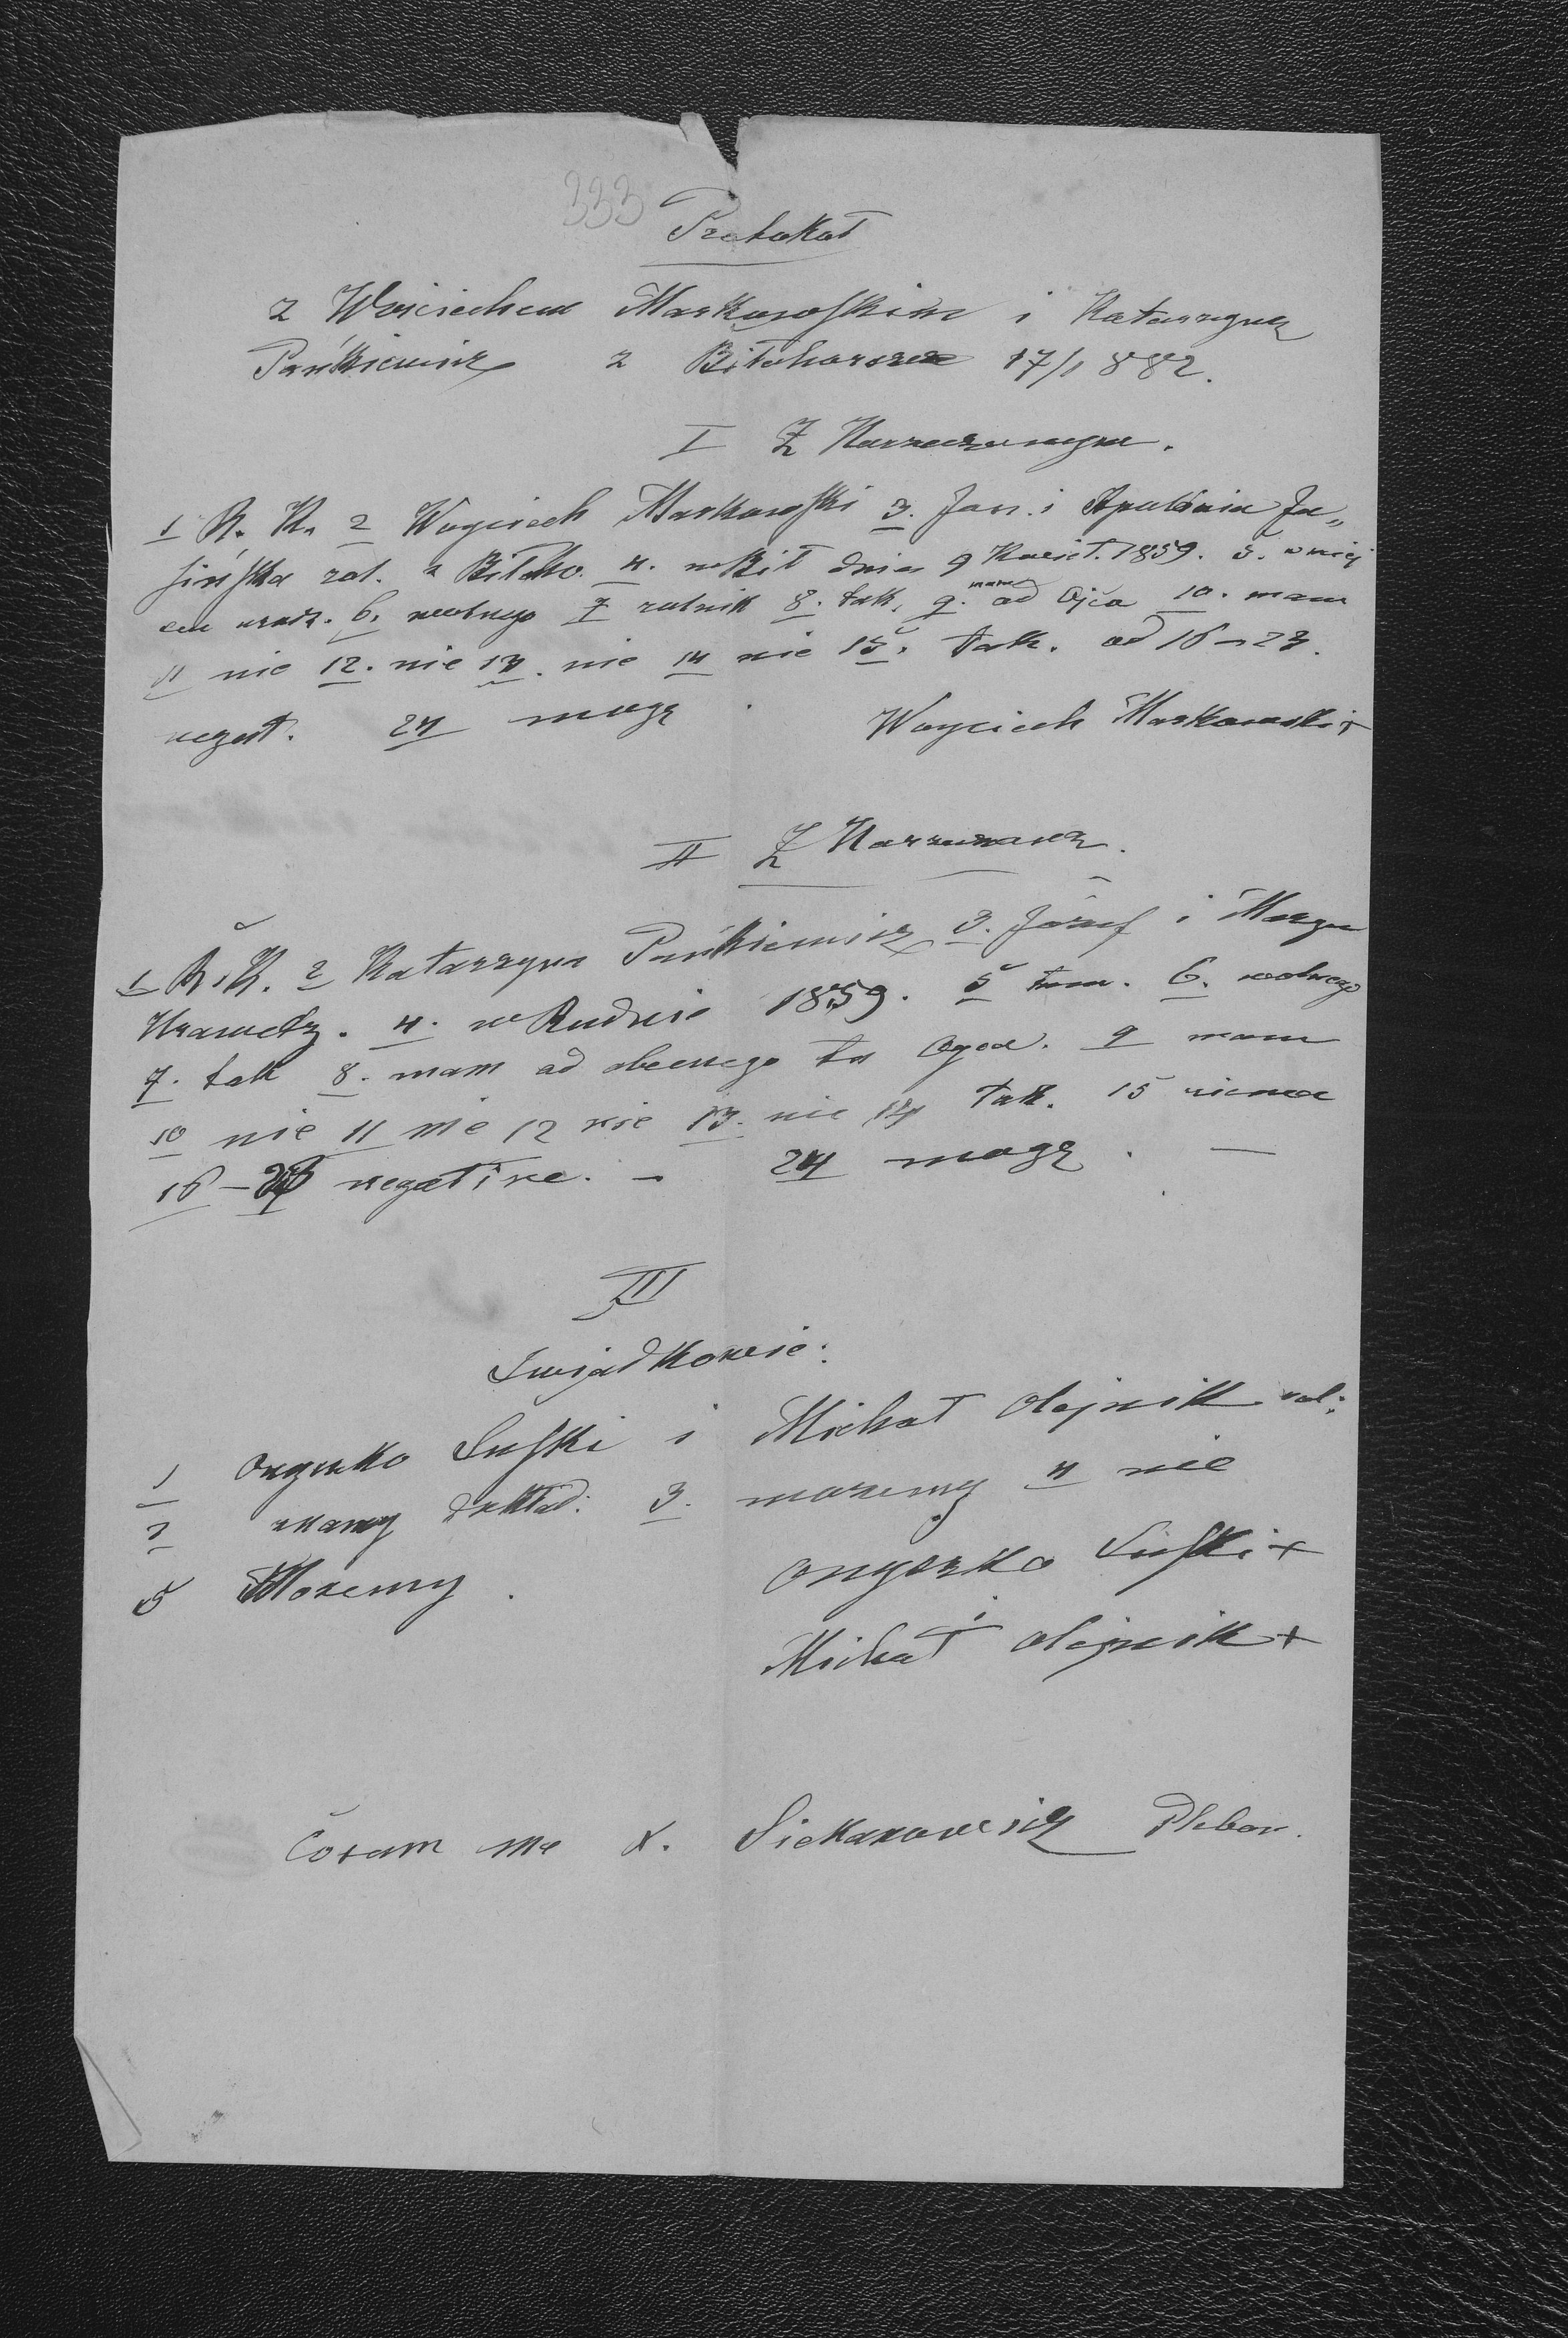 333
Protokoł
z Wojciechem Markowskim i Katarzyną
Pańkiewicz z Biłoharszcze 17/1 882.
I Z Narzeczonym.
1 R. K. 2 Woyciech Markowski 3. Jan i Apolonia Ja„
sińska rol. z Biłoho. 4. w Bił dnia 9 Kwiet. 1859. 5. w miej
cu urodz. 6. wolnego 7 rolnik 8. tak, 9. mam od Ojca 10. mam
11 nie 12. nie 13. nie 14 nie 15. tak. od 16-23.
negat. 24 mogę
Woyciech Markowski +
II Z Narzeczoną.
1 R. K. 2 Katarzyna Pańkiewicz 3. Józef i Marya
Krawetz. 4. w Rudnie 1859. 5 tam. 6. wolnego
7. tak 8. mam od obecnego tu Ojca. 9 mam
10 nie 11 nie 12 nie 13. nie 14 tak. 15 niema
16 - 23 negative. - 24 mogę. -
III
Swiadkowie:
1 Onyszko Suski i Michał Olejnik rol:
2 znamy dokład: 3. możemy 4 nie
5 Możemy.
Onyszko Suski +
Michał Olejnik +
Coram me X. Siekanowicz Pleban.